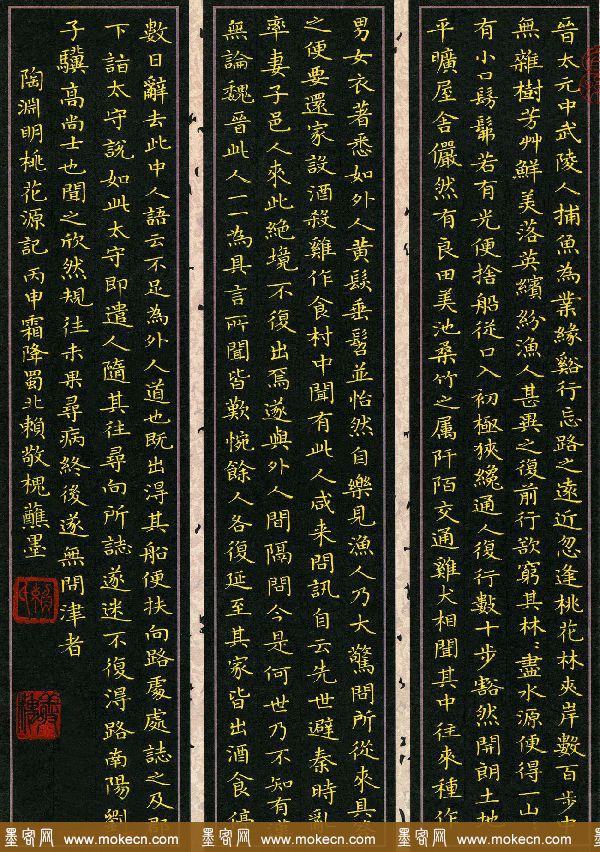 晉太元中武陵人捕魚為業緣谿行忘路之遠近忽逢桃花林夾岸數百步中
無雜樹芳艸鮮美落英繽紛漁人甚異之復前行欲窮其林〻盡水源便得一山〻
有小口髣髴若有光便捨船從口入初極狹纔通人復行數十步豁然開朗土地
平曠屋舍儼然有良田美池桑竹之屬阡陌交通雞犬相聞其中往來種作
男女衣著悉如外人黃髮垂髫並怡然自樂見漁人乃大驚問所從來具答
之便要還家設酒殺雞作食村中聞有此人咸来問訊自云先世避秦時亂
率妻子邑人來此絕境不復出焉遂與外人間隔問今是何世乃不知有漢
無論魏晉此人一一為具言所聞皆歎惋餘人各復延至其家皆出酒食停
數日辭去此中人語云不足為外人道也既出淂其船便扶向路處處誌之及郡
下詣太守說如此太守即遣人隨其往尋向所誌遂迷不復淂路南陽劉
子驥高尚士也聞之欣然規往未果尋病終後遂無問津者
陶淵明桃花源記丙申霜降蜀北賴敬槐蘸墨
墨客网 www.mokecn.com 墨客网 www.mokecn.com 墨客网 www.mokecn.com